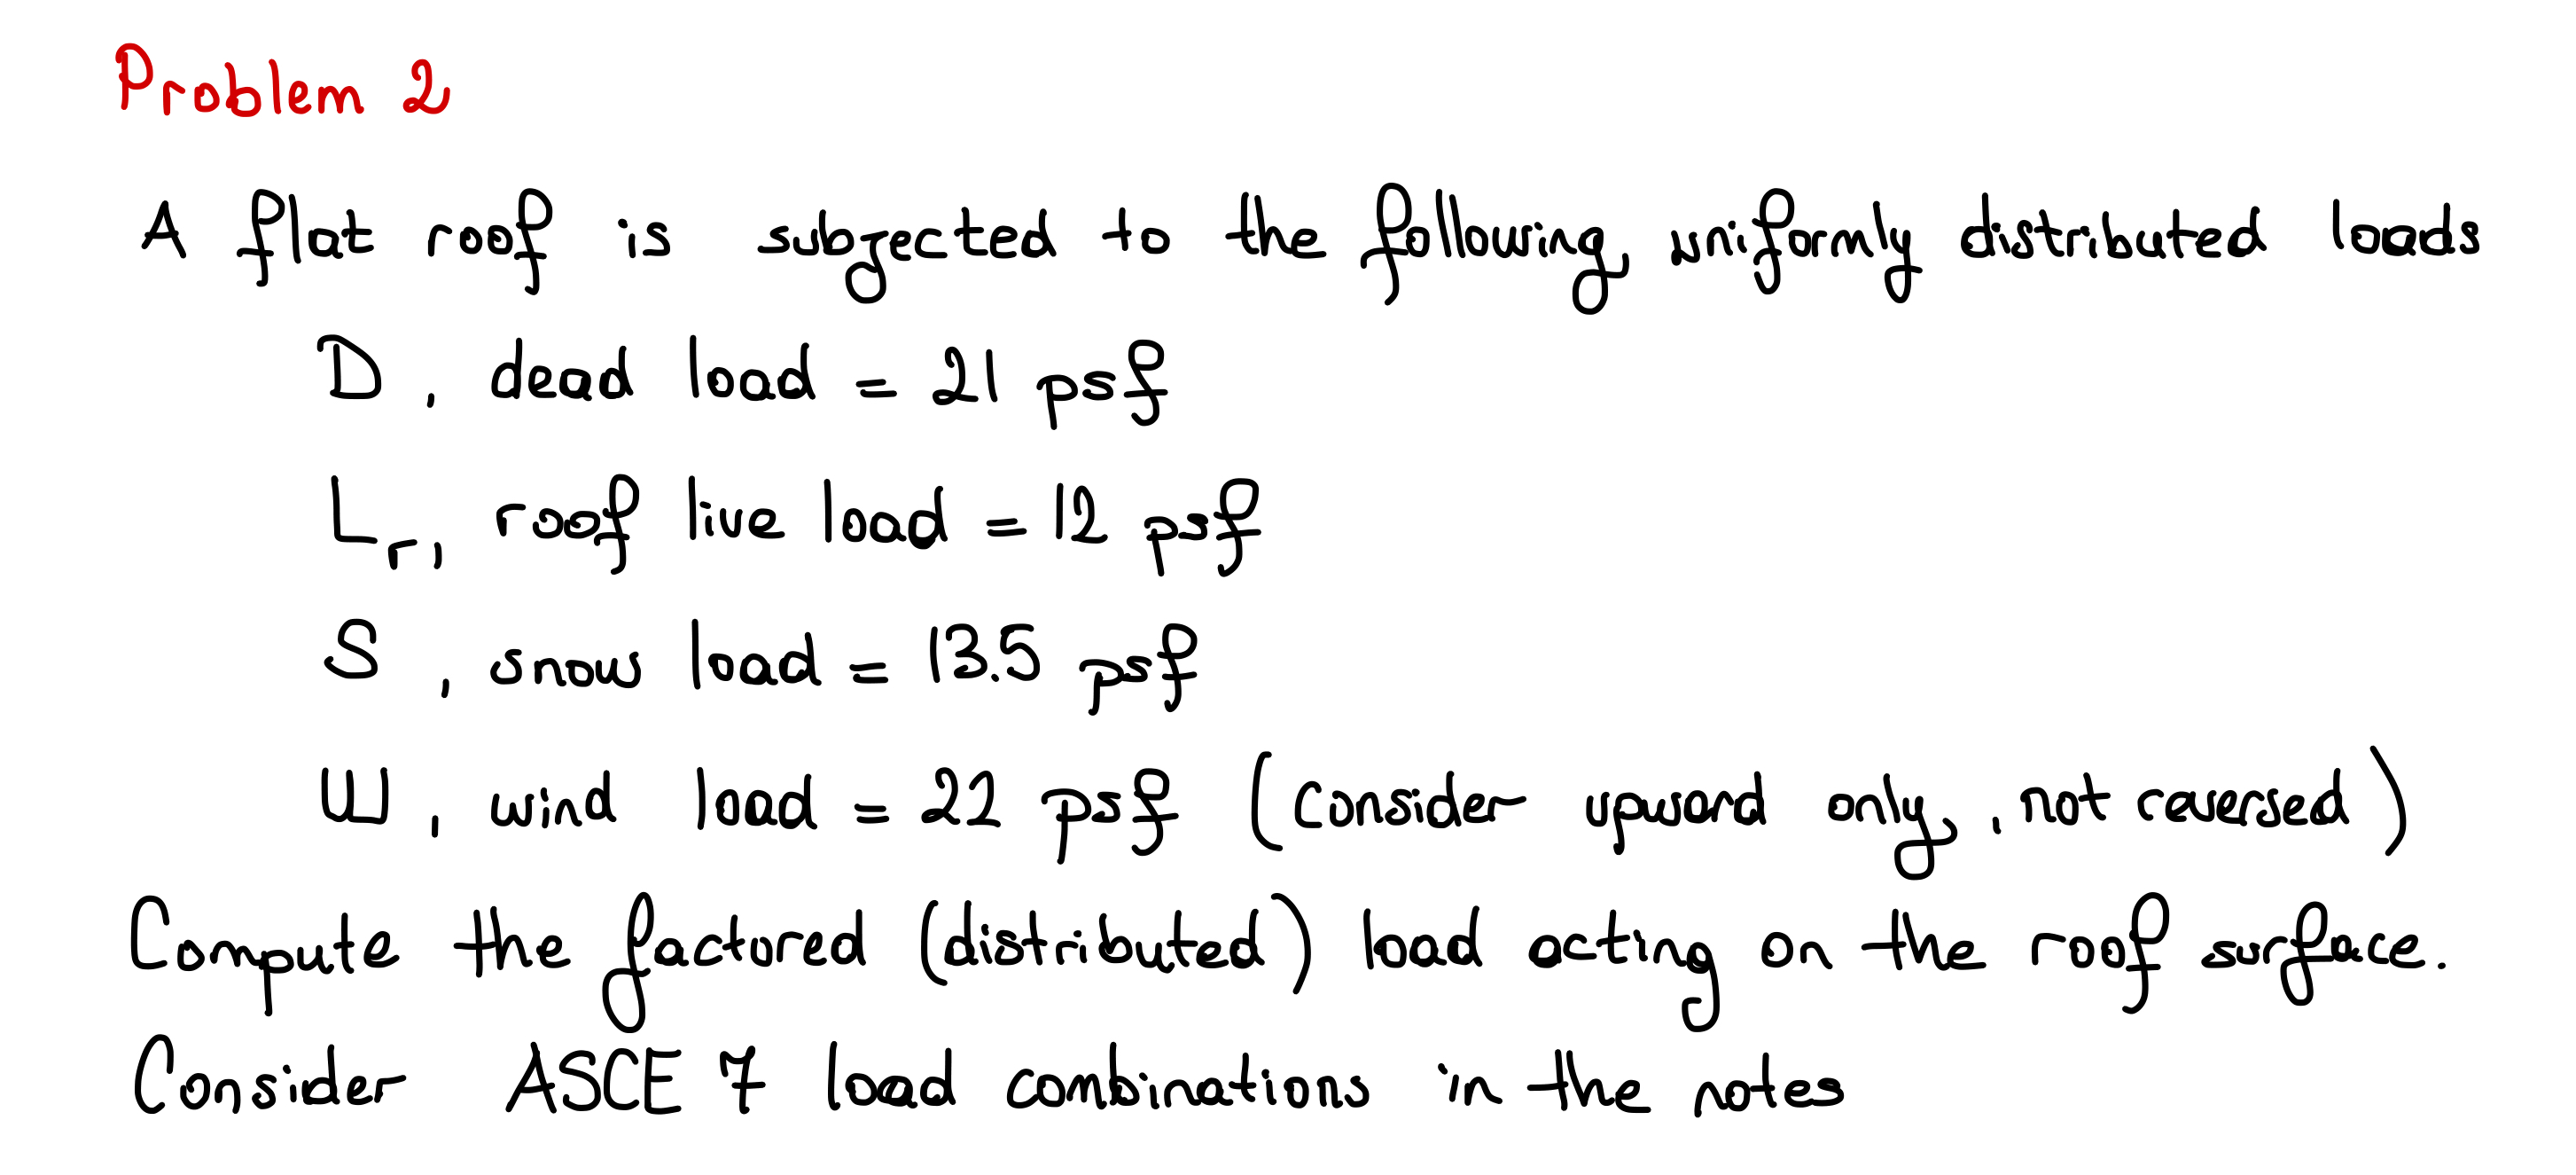 Problem 2
A flat roof is subjected to the following, uniformly distributed loads
D, dead load = 21 psf
Lr, roof live load = 12 psf
S, snow load = 13.5 psf
W, wind load = 22 psf (consider upward only, not reversed)
Compute the factored (distributed) load acting on the roof surface.
Consider ASCE 7 load combinations in the notes